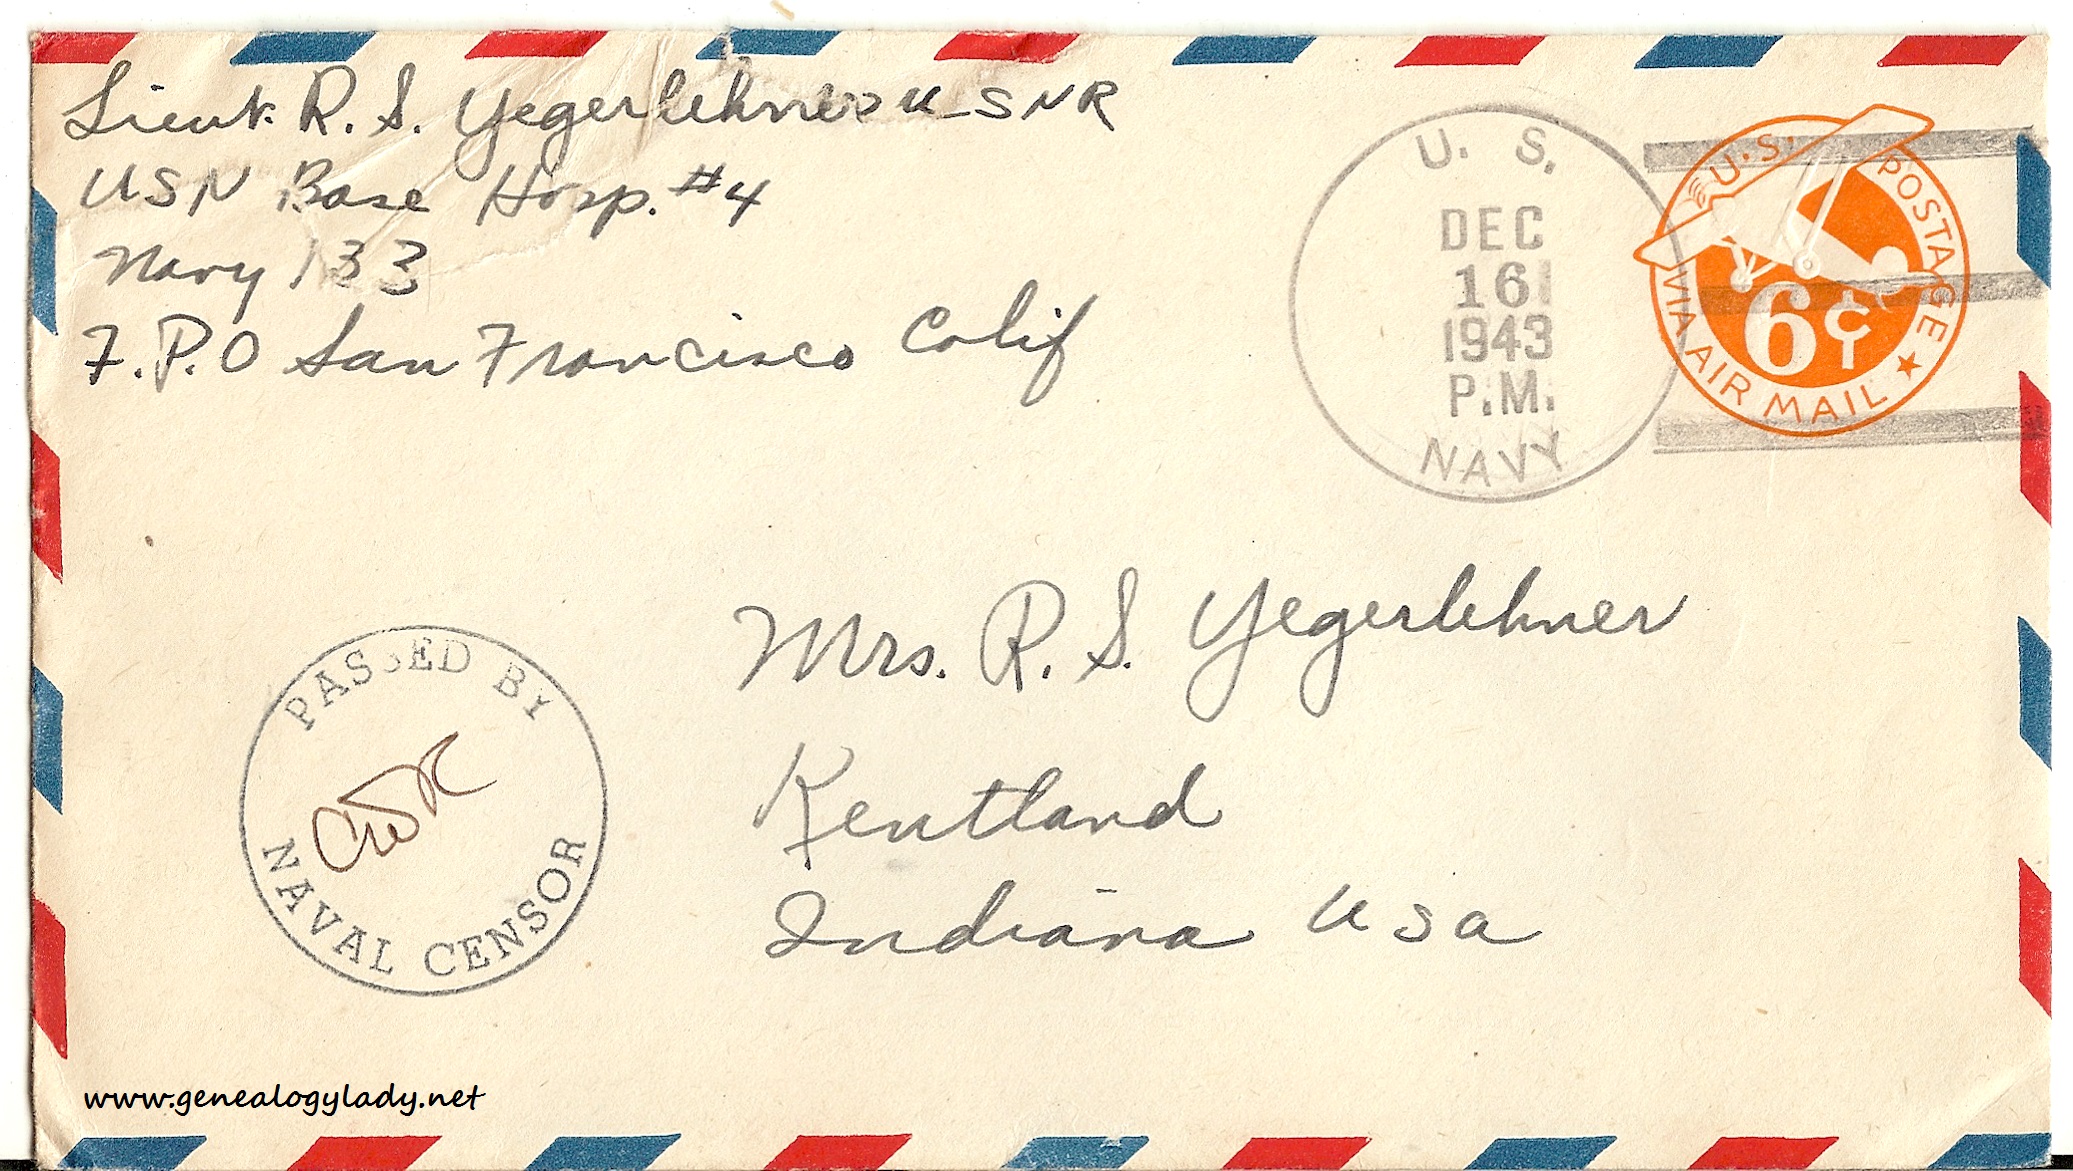 Lieut. R. S. Yegerlehner USNR
USN Base Hosp. #4
Navy 133
F.P.O San Francisco Calif
U. S.
DEC
16
1943
P.M.
NAVY
U.S. POSTAGE
VIA AIR MAIL
6¢
Mrs. R. S. Yegerlehner
Kentland
Indiana USA
PASSED BY
NAVAL CENSOR
www.genealogylady.net